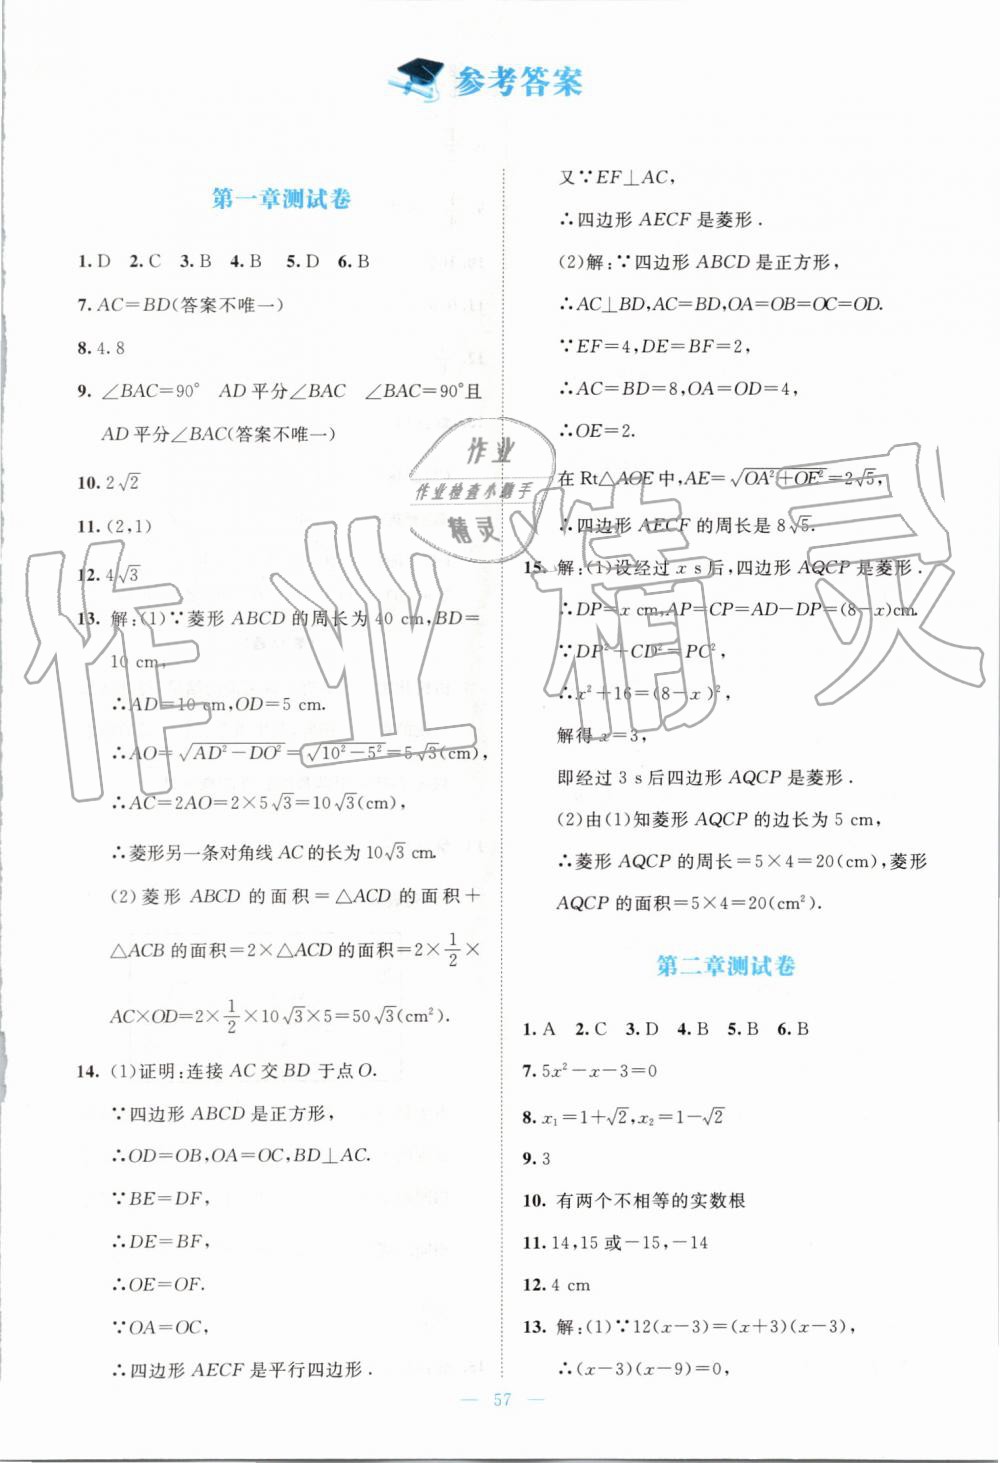 参考答案
第一章测试卷
1. D 2. C 3. B 4. B 5. D 6. B
7. AC=BD(答案不唯一)
8. 4.8
9. ∠BAC=90° AD平分∠BAC ∠BAC=90°且
AD平分∠BAC(答案不唯一)
10. 2√2
11. (2,1)
12. 4√3
13. 解:(1)∵菱形ABCD的周长为40 cm,BD=
10 cm,
∴AD=10 cm,OD=5 cm.
∴AO=√(AD²-DO²)=√(10²-5²)=5√3(cm),
∴AC=2AO=2×5√3=10√3(cm),
∴菱形另一条对角线AC的长为10√3 cm.
(2)菱形ABCD的面积=△ACD的面积+
△ACB的面积=2×△ACD的面积=2×1/2×
AC×OD=2×1/2×10√3×5=50√3(cm²).
14. (1)证明:连接AC交BD于点O.
∵四边形ABCD是正方形,
∴OD=OB,OA=OC,BD⊥AC.
∵BE=DF,
∴DE=BF,
∴OE=OF.
∵OA=OC,
∴四边形AECF是平行四边形.
又∵EF⊥AC,
∴四边形AECF是菱形.
(2)解:∵四边形ABCD是正方形,
∴AC⊥BD,AC=BD,OA=OB=OC=OD.
∵EF=4,DE=BF=2,
∴AC=BD=8,OA=OD=4,
∴OE=2.
在Rt△AOE中,AE=√(OA²+OE²)=2√5,
∴四边形AECF的周长是8√5.
15. 解:(1)设经过x s后,四边形AQCP是菱形.
∴DP=x cm,AP=CP=AD-DP=(8-x)cm.
∵DP²+CD²=PC²,
∴x²+16=(8-x)²,
解得x=3,
即经过3 s后四边形AQCP是菱形.
(2)由(1)知菱形AQCP的边长为5 cm,
∴菱形AQCP的周长=5×4=20(cm),菱形
AQCP的面积=5×4=20(cm²).
第二章测试卷
1. A 2. C 3. D 4. B 5. B 6. B
7. 5x²-x-3=0
8. x₁=1+√2,x₂=1-√2
9. 3
10. 有两个不相等的实数根
11. 14,15或-15,-14
12. 4 cm
13. 解:(1)∵12(x-3)=(x+3)(x-3),
∴(x-3)(x-9)=0,
— 57 —
作业
作业检查小助手
精灵
作业精灵